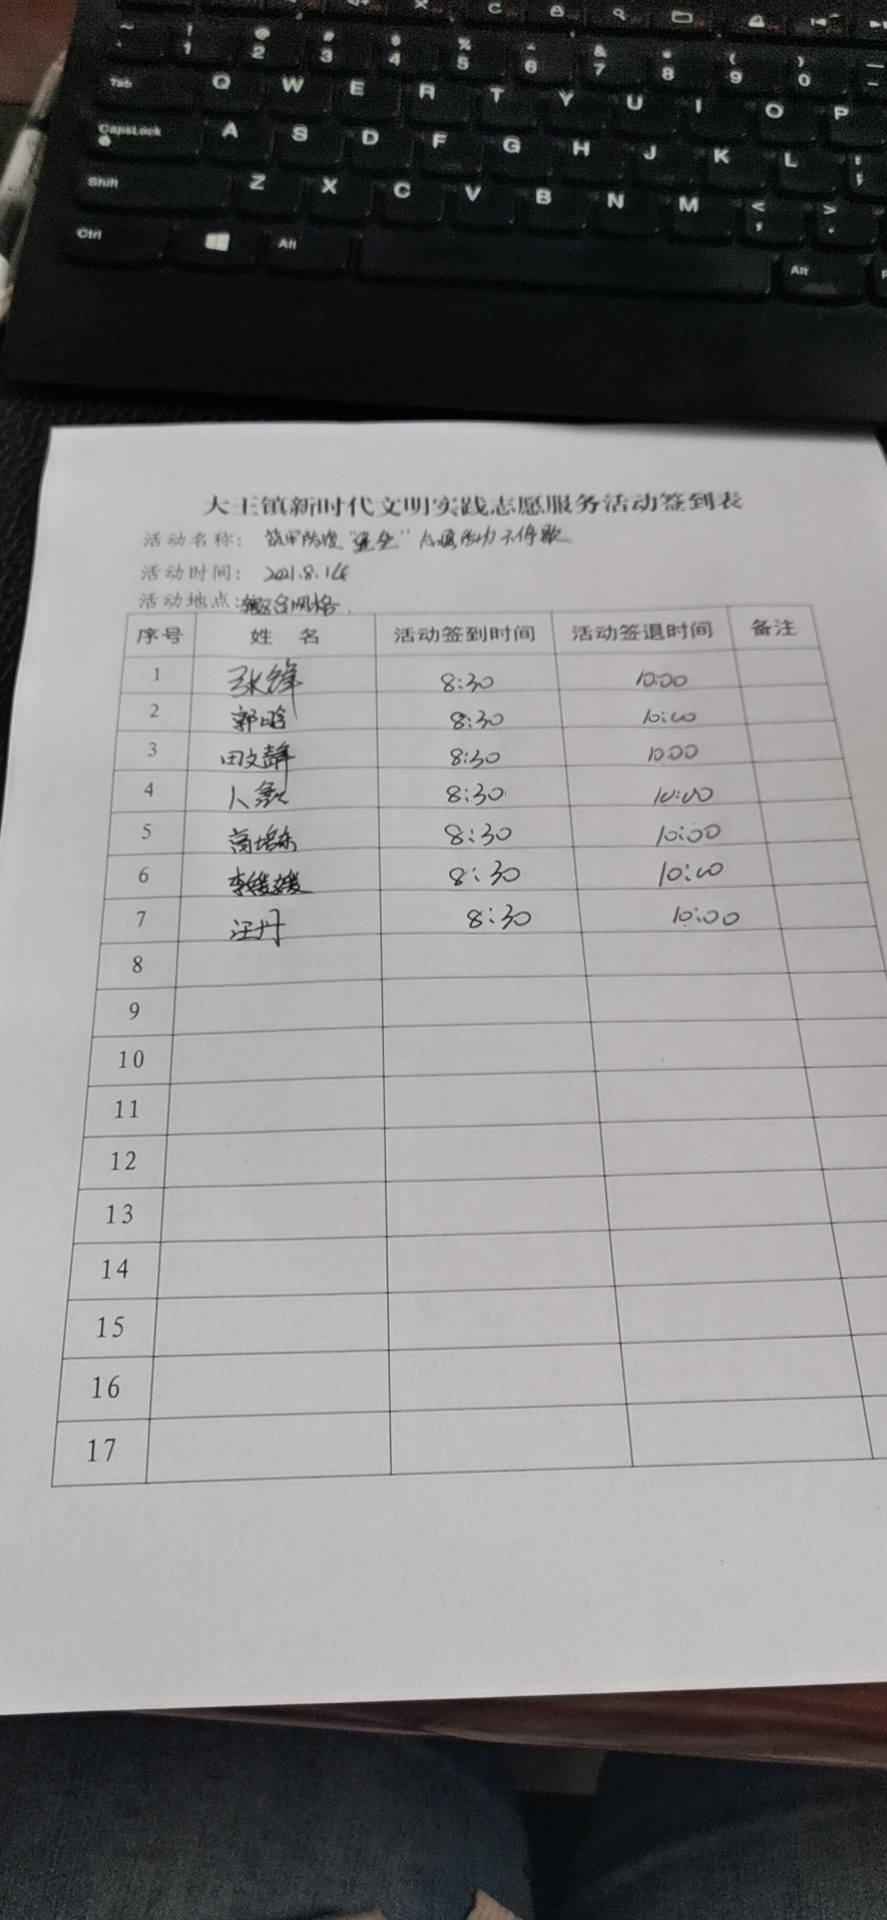 ~ ! @ # $ % ^ & * ( ) —
` 1 2 3 4 5 6 7 8 9 0 -
Tab Q W E R T Y U I O P
CapsLock A S D F G H J K L : ;
Shift Z X C V B N M < , > .
Ctrl Alt Alt
大王镇新时代文明实践志愿服务活动签到表
活动名称: 筑牢防疫“堡垒” 志愿活力不停歇
活动时间: 2021.8.14
活动地点:
序号 姓 名 活动签到时间 活动签退时间 备注
1 张锋 8:30 10:00
2 郭晗 8:30 10:00
3 田文静 8:30 10:00
4 8:30 10:00
5 高培东 8:30 10:00
6 李媛媛 8:30 10:00
7 汪丹 8:30 10:00
8
9
10
11
12
13
14
15
16
17